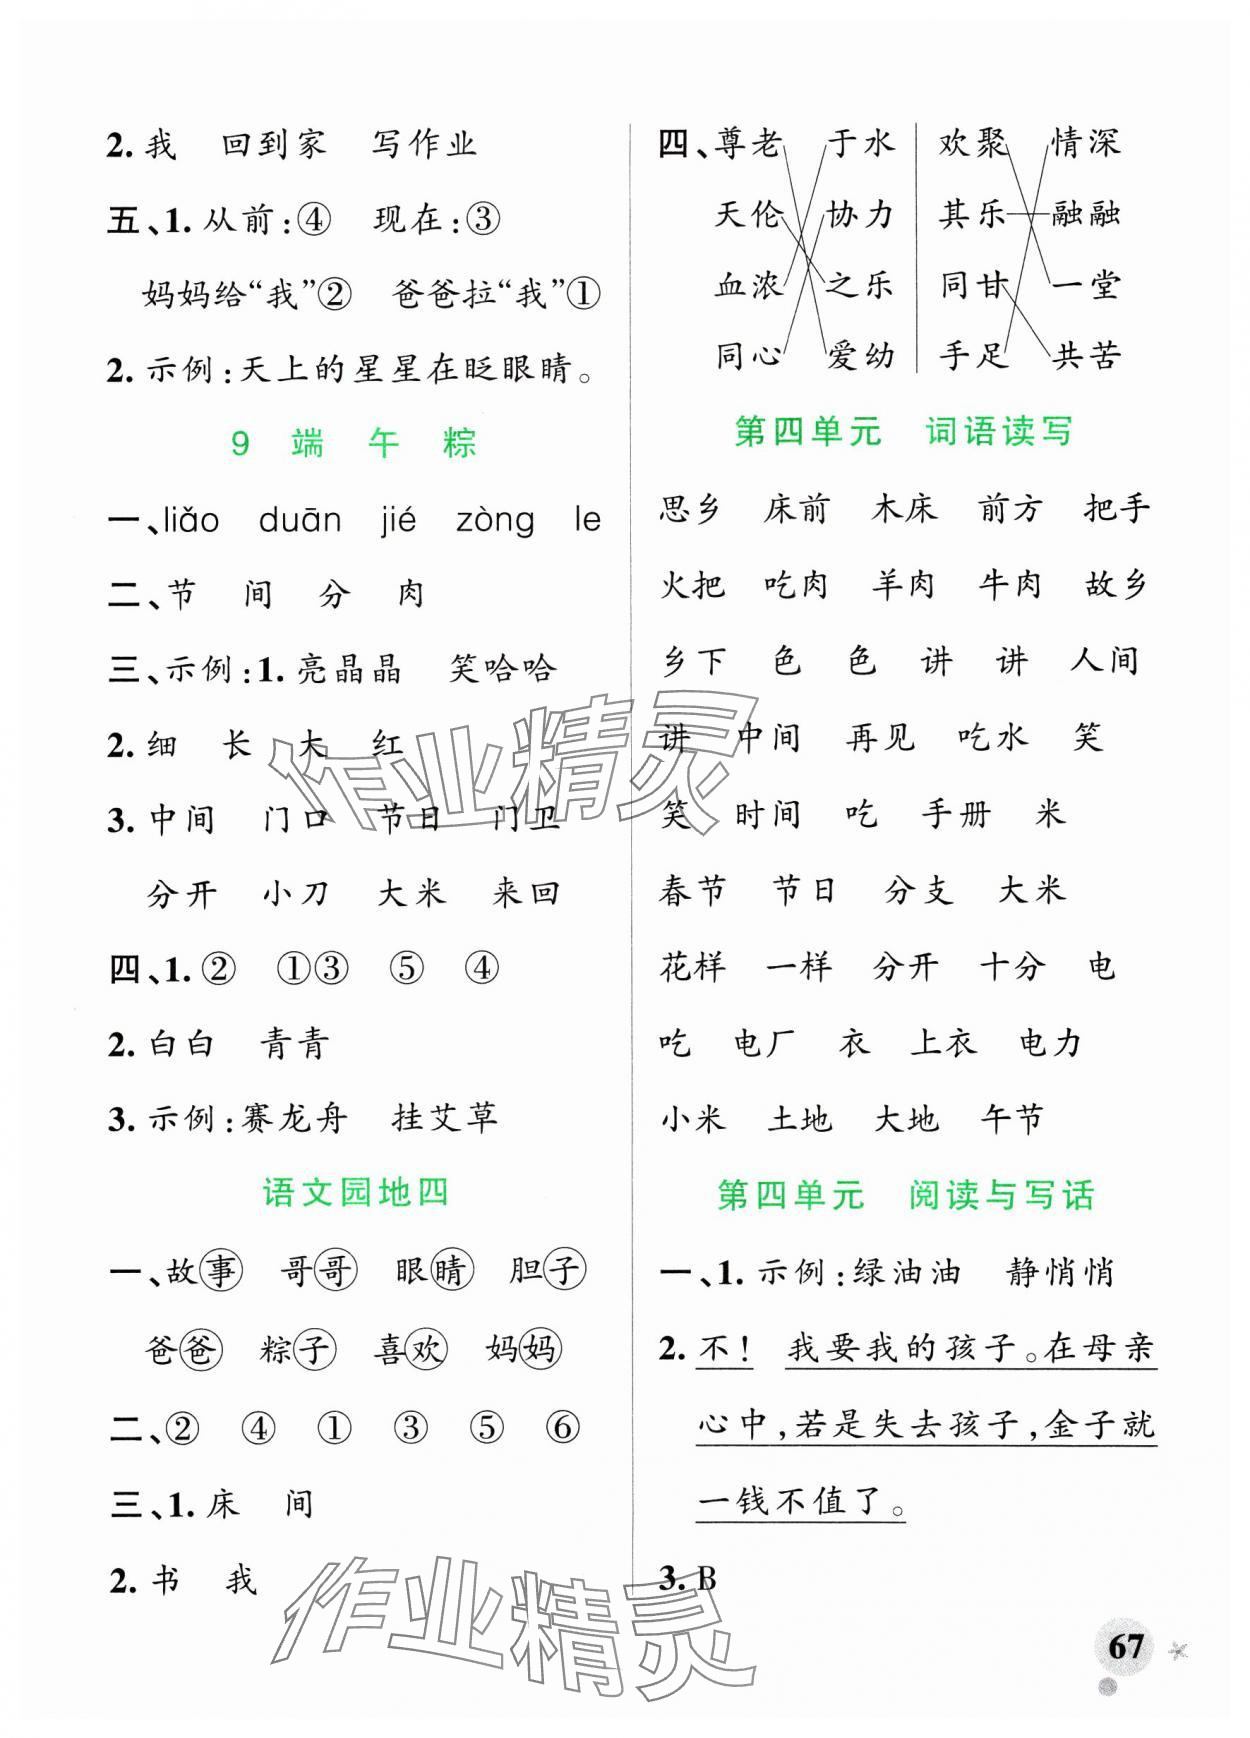 2. 我　回到家　写作业
五、1. 从前:④　现在:③
妈妈给“我”②　爸爸拉“我”①
2. 示例:天上的星星在眨眼睛。
9　端　午　粽
一、liǎo　duān　jié　zòng　le
二、节　间　分　肉
三、示例:1. 亮晶晶　笑哈哈
2. 细　长　大　红
3. 中间　门口　节日　门卫
分开　小刀　大米　来回
四、1. ②　①③　⑤　④
2. 白白　青青
3. 示例:赛龙舟　挂艾草
语文园地四
一、故事　哥哥　眼睛　胆子
爸爸　粽子　喜欢　妈妈
二、②　④　①　③　⑤　⑥
三、1. 床　间
2. 书　我
四、尊老　于水　欢聚　情深
天伦　协力　其乐　融融
血浓　之乐　同甘　一堂
同心　爱幼　手足　共苦
第四单元　词语读写
思乡　床前　木床　前方　把手
火把　吃肉　羊肉　牛肉　故乡
乡下　色　色　讲　讲　人间
讲　中间　再见　吃水　笑
笑　时间　吃　手册　米
春节　节日　分支　大米
花样　一样　分开　十分　电
吃　电厂　衣　上衣　电力
小米　土地　大地　午节
第四单元　阅读与写话
一、1. 示例:绿油油　静悄悄
2. 不!　我要我的孩子。在母亲
心中,若是失去孩子,金子就
一钱不值了。
3. B
67
作业精灵
作业精灵